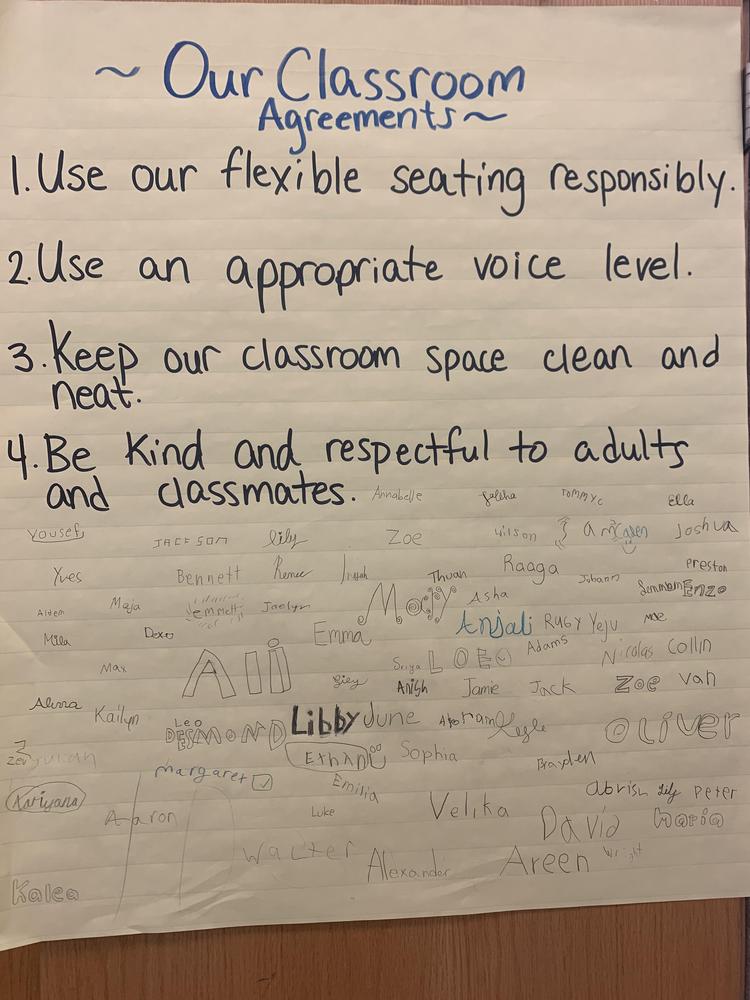 ~ Our Classroom
Agreements ~
1. Use our flexible seating responsibly.
2. Use an appropriate voice level.
3. Keep our classroom space clean and
neat.
4. Be Kind and respectful to adults
and classmates.
Annabelle Tommy C Ella
Yousef JACKSON lily Zoe wilson Joshua
Yves Bennett Renee Thuan Raaga Johann Preston
Maja Emmett Jaelyn Mary Asha Enzo
Mila Dexter Emma Anjali RUBY Yeju
Max Alli LOEO Adams Nicolas Collin
Anish Jamie Jack Zoe Van
Alina Kailyn Leo DESMOND Libby June OLIVER
Zev Ethan Sophia Brayden
margaret Emilia abrish Lily Peter
Kariyana Aaron Luke Velika David Maria
Walter Alexander Areen Wright
Kalea